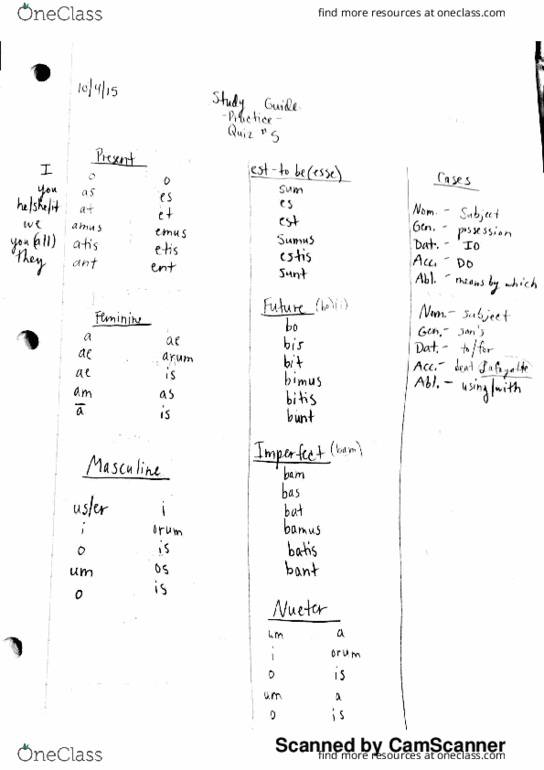 OneClass
find more resources at oneclass.com
10/4/15
Study Guide
-Practice-
Quiz #5
Present
I o o
you as es
he/she/it at et
we amus emus
you(all) atis etis
they ant ent
Feminine
a ae
ae arum
ae is
am as
ā is
Masculine
us/er i
i orum
o is
um os
o is
est-to be(esse)
sum
es
est
sumus
estis
sunt
Future
bo
bis
bit
bimus
bitis
bunt
Imperfect (bam)
bam
bas
bat
bamus
batis
bant
Nueter
um a
i orum
o is
um a
o is
Cases
Nom. - Subject
Gen. - possession
Dat. - IO
Acc. - DO
Abl. - means by which
Nom - subject
Gen. - son's
Dat. - to/for
Acc. -
Abl. - using/with
Scanned by CamScanner
OneClass
find more resources at oneclass.com